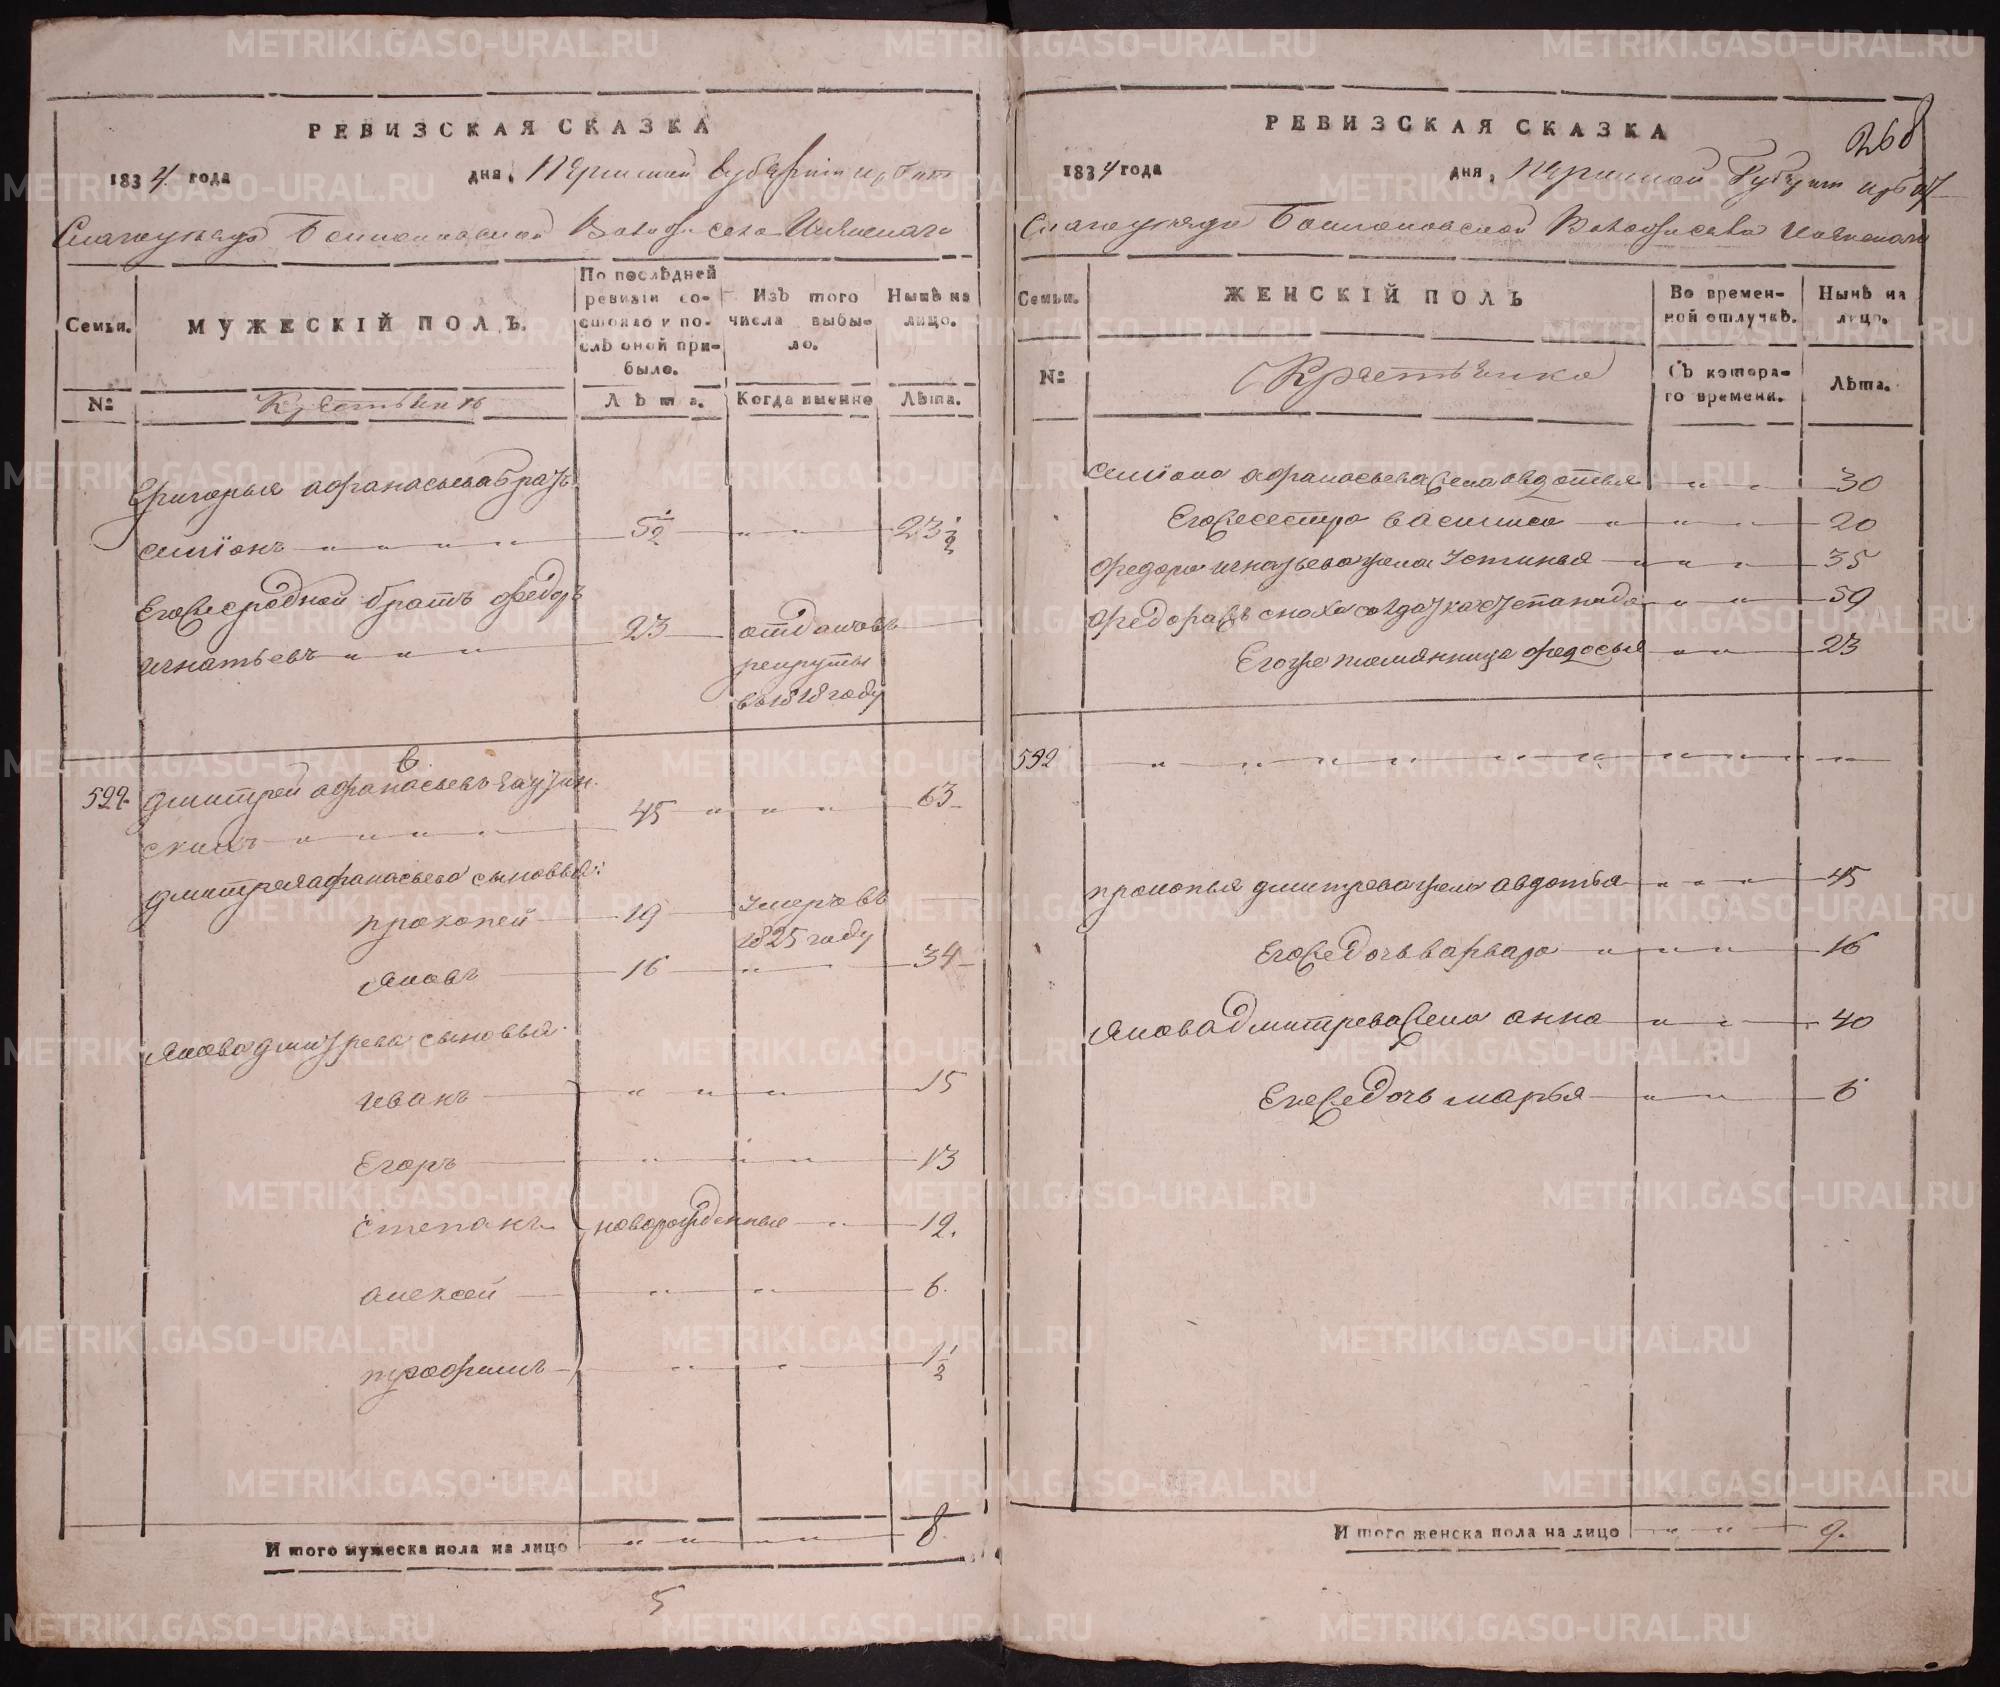 РЕВИЗСКАЯ СКАЗКА
1834 года дня, Пермской губернии Ирбит
скаго уезда Волости села
Семьи.
МУЖЕСКІЙ ПОЛЪ.
По послѣдней ревизіи состояло и послѣ оной прибыло.
Изъ того числа выбыло.
Нынѣ на лицо.
№
Крестьянъ
Лѣта.
Когда именно
Лѣта.
Григорья афанасьева братъ
симіонъ 5 1/2 23 1/2
Егоже сродной братъ федоръ
игнатьевъ 23 отдановъ
рекруты
в 1818 году
592 дмитрей афанасьевъ
скихъ 45 63
дмитрея афанасьева сыновья:
прокопей 19 умеръ въ
1825 году
яковъ 16 34
якова дмитрева сыновья
иванъ 15
Егоръ 13
степанъ новорожденныя 12.
алексей 6.
трофимъ 1 1/2
Итого мужеска пола на лицо 8.
5
268
РЕВИЗСКАЯ СКАЗКА
1834 года дня, Пермской Губернии Ирбит
скаго уезда Волости села
Семьи.
ЖЕНСКІЙ ПОЛЪ
Во временной отлучкѣ.
Нынѣ на лицо.
№
Крестьянка
Съ котораго времени.
Лѣта.
симіона афанасьева жена авдотья 30
Егоже сестра василиса 20
федора игнатьева жена устинья 35
федора жъ сноха солдатка степанида 59
Егоже племянница федосья 23
592
прокопья дмитрева жена авдотья 45
Егоже дочь варвара 16
якова дмитрева жена анна 40
Егоже дочь марья 6
Итого женска пола на лицо 9.
METRIKI.GASO-URAL.RU